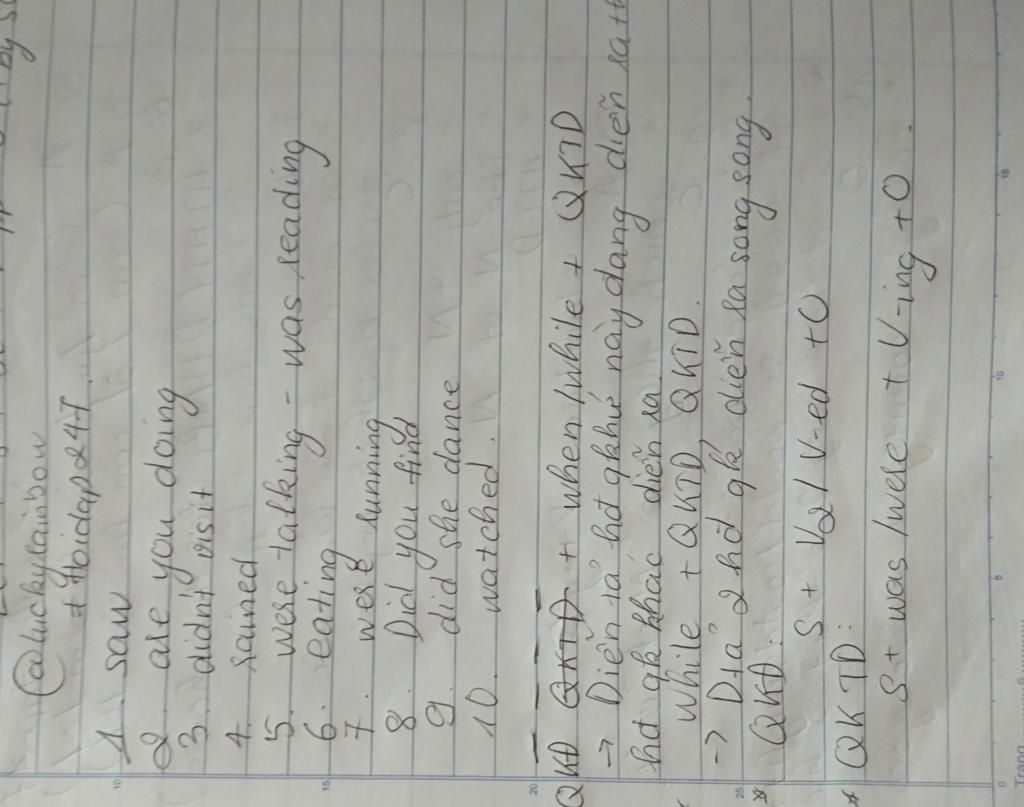 @luckyrainbow
# Hoidap247
1. saw
2 are you doing
3. didn't visit
4. rained
5. were talking - was reading
6. eating
7. were running
8. Did you find
9. did she dance
10. watched.
QKĐ + when/while + QKTD
-> Diễn tả hđ qkhứ này đang diễn ra thì
hđ qk khác diễn ra
While + QKTD, QKTD.
-> Dtả 2 hđ qk diễn ra song song.
* QKĐ:
S + V2 / V-ed + O
* QKTD:
S + was / were + V-ing + O.
Trang